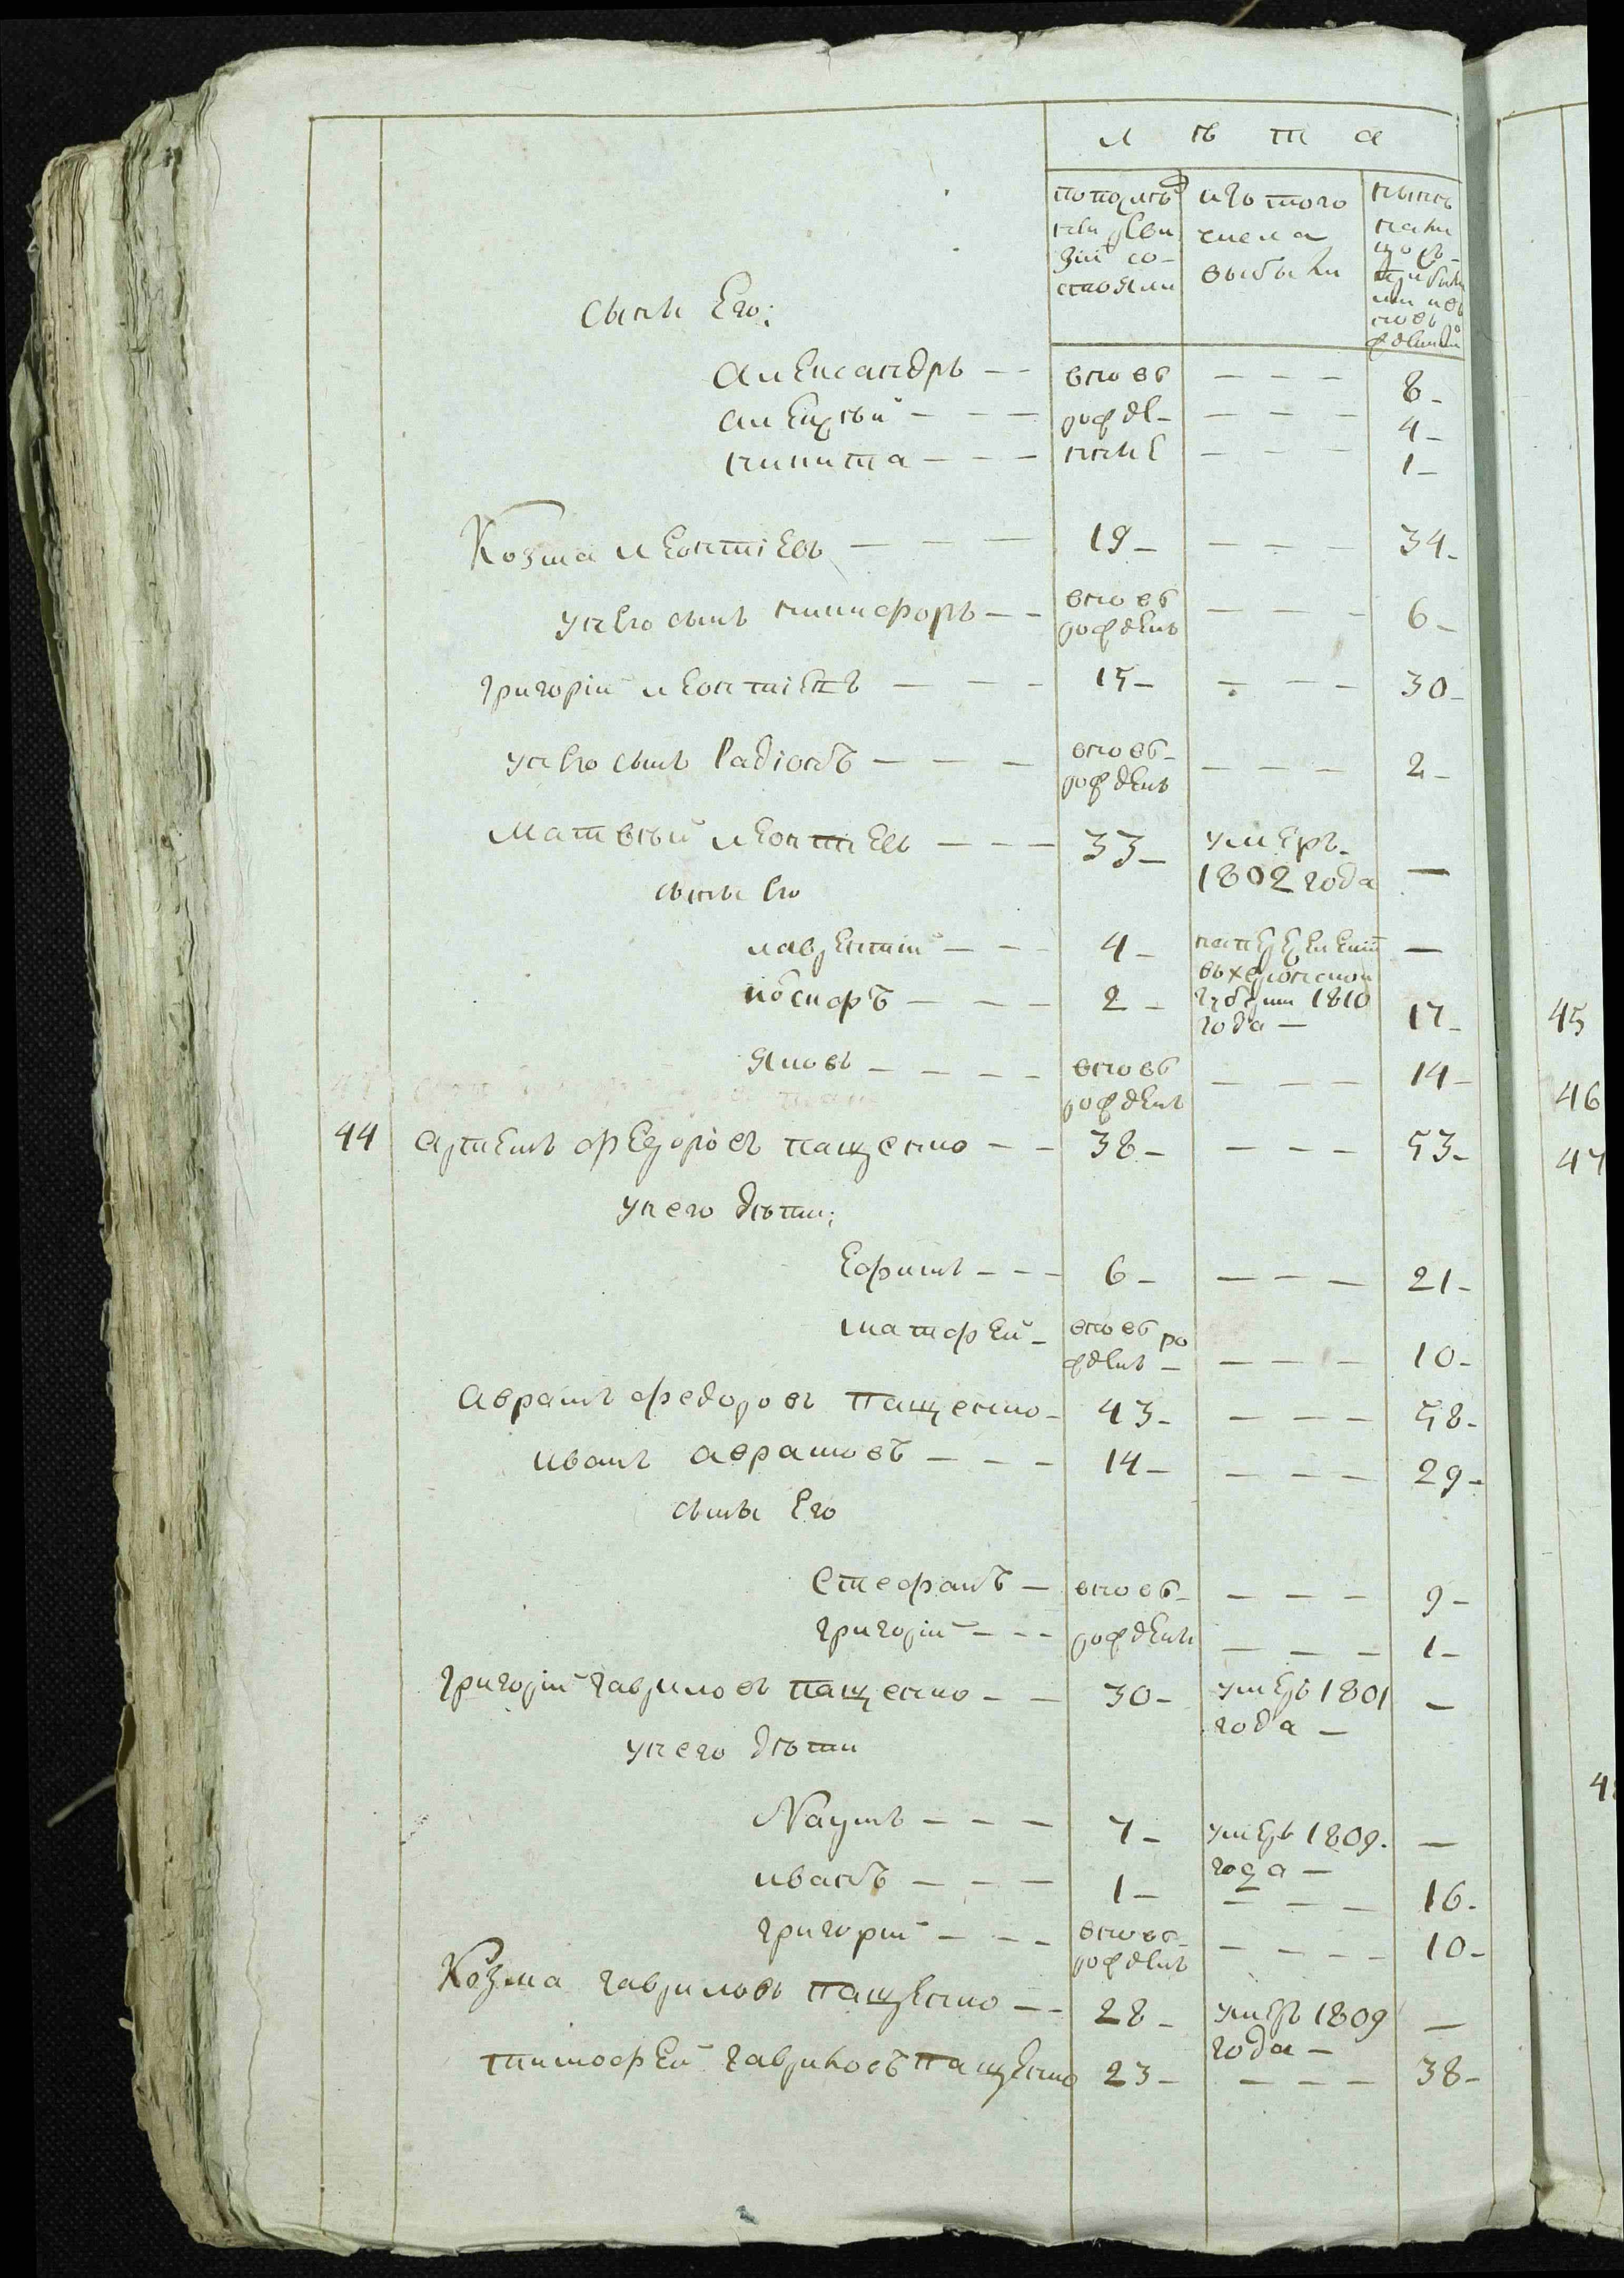 лѣта
по послѣдней ревизіи состояли
изъ того числа выбыли
нынѣ на лицо
сыны Его:
александръ — вновь — — — 8
алексѣй — — — рожде — — — 4
никита — — — нные — — — 1
Козма леонтіевъ — — — 19 — — — 34
у нево сынъ никифоръ — — вновь рожденъ — — — 6
григорій леонтіевъ — — — 15 — — — 30
у нево сынъ Радіонъ — — — вновь рожденъ — — — 2
матвѣй леонтіевъ — — — 33 умеръ 1802 года —
сыны Ево
лаврентій — — — 4 —
іосифъ — — — 2 въ херсонской губерніи 1810 года — 17
яковъ — — — — вновь рожденъ — — — 14
44 артемъ федоровъ пащенко — — 38 — — — 53
у него дѣти:
Ефимъ — — — 6 — — — 21
матфей — вновь рожденъ — — — 10
аврамъ федоровъ пащенко — 43 — — — 58
иванъ аврамовъ — — — 14 — — — 29
сыны Его
Стефанъ — вновь — — — 9
григорій — — — рождены — — — 1
григорій гавриловъ пащенко — — 30 умеръ 1801 года — —
у него дѣти
Наумъ — — — 7 умеръ 1809 года — —
иванъ — — — 1 — — — 16
григорій — — — вновь рожденъ — — — — 10
Козма гавриловъ пащенко — — 28 умеръ 1809 года — —
тимофей гавриловъ пащенко 23 — — — 38
45
46
47